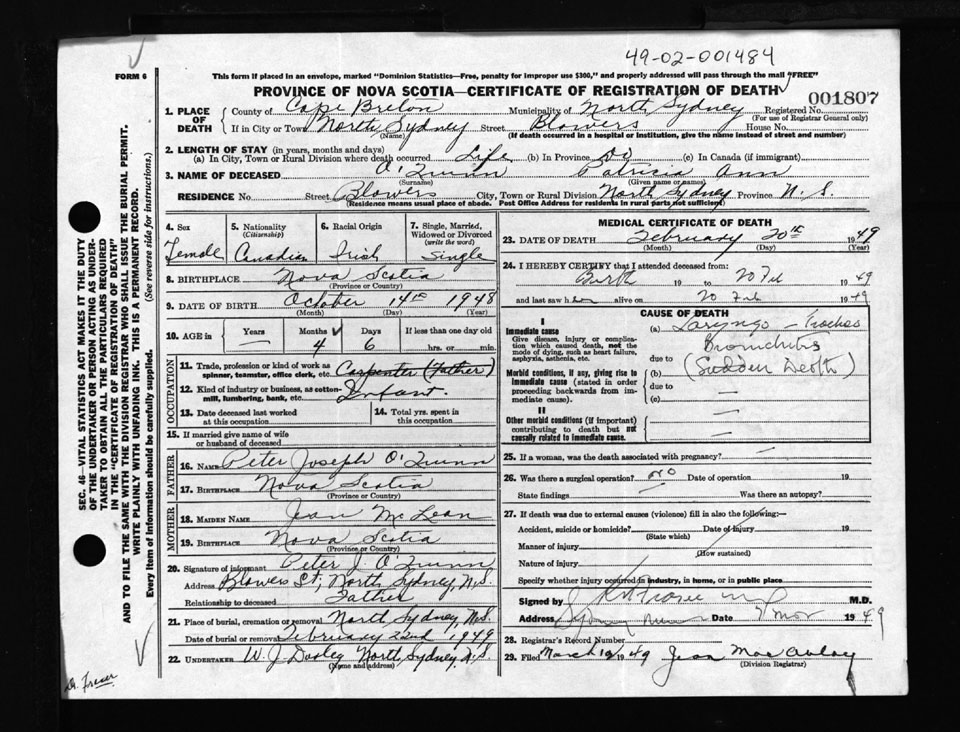 49-02-001484
FORM 6
This form if placed in an envelope, marked "Dominion Statistics—Free, penalty for improper use $300," and properly addressed will pass through the mail "FREE"
PROVINCE OF NOVA SCOTIA—CERTIFICATE OF REGISTRATION OF DEATH
001807
1. PLACE OF DEATH
County of Cape Breton Municipality of North Sydney Registered No.
(For use of Registrar General only)
If in City or Town North Sydney Street Blowers House No.
(Name) (If death occurred in a hospital or institution, give the name instead of street and number)
2. LENGTH OF STAY (in years, months and days)
(a) In City, Town or Rural Division where death occurred Life (b) In Province Do (c) In Canada (if immigrant)
3. NAME OF DECEASED O'Quinn Patricia Ann
(Surname) (Given name or names)
RESIDENCE No. Street Blowers City, Town or Rural Division North Sydney Province N. S.
(Residence means usual place of abode. Post Office Address for residents in rural parts not sufficient)
4. Sex
Female
5. Nationality
(Citizenship)
Canadian
6. Racial Origin
Irish
7. Single, Married, Widowed or Divorced
(write the word)
Single
8. BIRTHPLACE Nova Scotia
(Province or Country)
9. DATE OF BIRTH October 14th 1948
(Month) (Day) (Year)
10. AGE in
Years —
Months 4
Days 6
If less than one day old
hrs. or min.
OCCUPATION
11. Trade, profession or kind of work as spinner, teamster, office clerk, etc. Carpenter (Father)
12. Kind of industry or business, as cotton-mill, lumbering, bank, etc. Infant.
13. Date deceased last worked at this occupation
14. Total yrs. spent in this occupation
15. If married give name of wife or husband of deceased
FATHER
16. NAME Peter Joseph O'Quinn
17. BIRTHPLACE Nova Scotia
(Province or Country)
MOTHER
18. MAIDEN NAME Jean McLean
19. BIRTHPLACE Nova Scotia
(Province or Country)
20. Signature of informant Peter J. O'Quinn
Address Blowers St; North Sydney, N.S.
Relationship to deceased Father
21. Place of burial, cremation or removal North Sydney N.S.
Date of burial or removal February 22nd 1949
22. UNDERTAKER W. J. Dooley North Sydney, N.S.
(Name and address)
MEDICAL CERTIFICATE OF DEATH
23. DATE OF DEATH February 20th 1949
(Month) (Day) (Year)
24. I HEREBY CERTIFY that I attended deceased from:
Birth 19 to 20 Feb 1949
and last saw her alive on 20 Feb 1949
CAUSE OF DEATH
I
Immediate cause
Give disease, injury or complication which caused death, not the mode of dying, such as heart failure, asphyxia, asthenia, etc.
(a) Laryngo - Tracheo
Bronchitis
due to
Morbid conditions, if any, giving rise to immediate cause (stated in order proceeding backwards from immediate cause).
(b) (Sudden Death)
due to
(c) —
II
Other morbid conditions (if important) contributing to death but not causally related to immediate cause.
—
—
25. If a woman, was the death associated with pregnancy? —
26. Was there a surgical operation? no Date of operation 19
State findings Was there an autopsy?
27. If death was due to external causes (violence) fill in also the following:—
Accident, suicide or homicide? Date of injury 19
(State which)
Manner of injury
(How sustained)
Nature of injury
Specify whether injury occurred in industry, in home, or in public place
Signed by M.D.
Address Sydney Mines Date 8 Mar 1949
28. Registrar's Record Number
29. Filed March 19 1949 Jean MacAulay
(Division Registrar)
SEC. 46—VITAL STATISTICS ACT MAKES IT THE DUTY
OF THE UNDERTAKER OR PERSON ACTING AS UNDER-
TAKER TO OBTAIN ALL THE PARTICULARS REQUIRED
IN THE "CERTIFICATE OF REGISTRATION OF DEATH"
AND TO FILE THE SAME WITH THE DIVISION REGISTRAR WHO SHALL ISSUE THE BURIAL PERMIT.
WRITE PLAINLY WITH UNFADING INK. THIS IS A PERMANENT RECORD.
Every item of Information should be carefully supplied. (See reverse side for instructions.)
Dr. Fraser